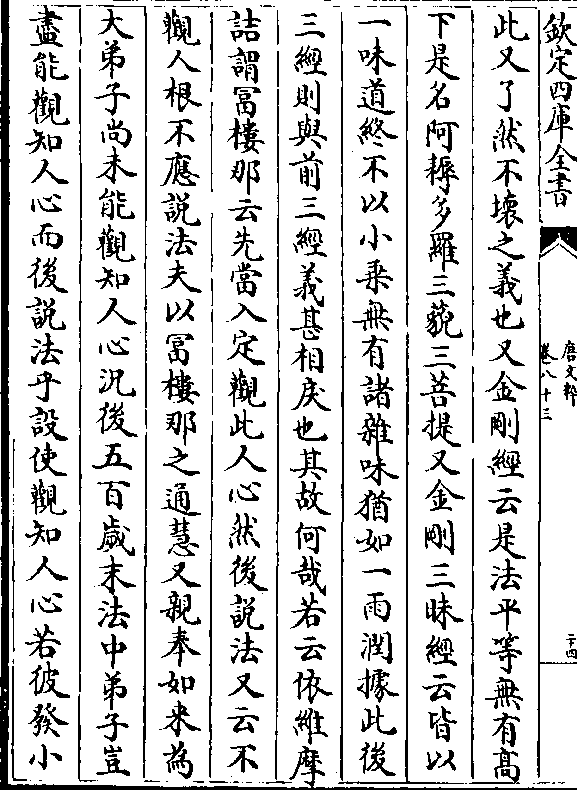 欽定四庫全書
唐文粹
卷八十三
二十四
此又了然不壞之義也又金剛經云是法平等無有高
下是名阿耨多羅三藐三菩提又金剛三昧經云皆以
一味道終不以小乘無有諸雜味猶如一雨潤據此後
三經則與前三經義甚相戾也其故何哉若云依維摩
詰謂冨樓那云先當入定觀此人心然後説法又云不
觀人根不應説法夫以冨樓那之通慧又親奉如来為
大弟子尚未能觀知人心况後五百歲末法中弟子豈
盡能觀知人心而後説法乎設使觀知人心若彼發小